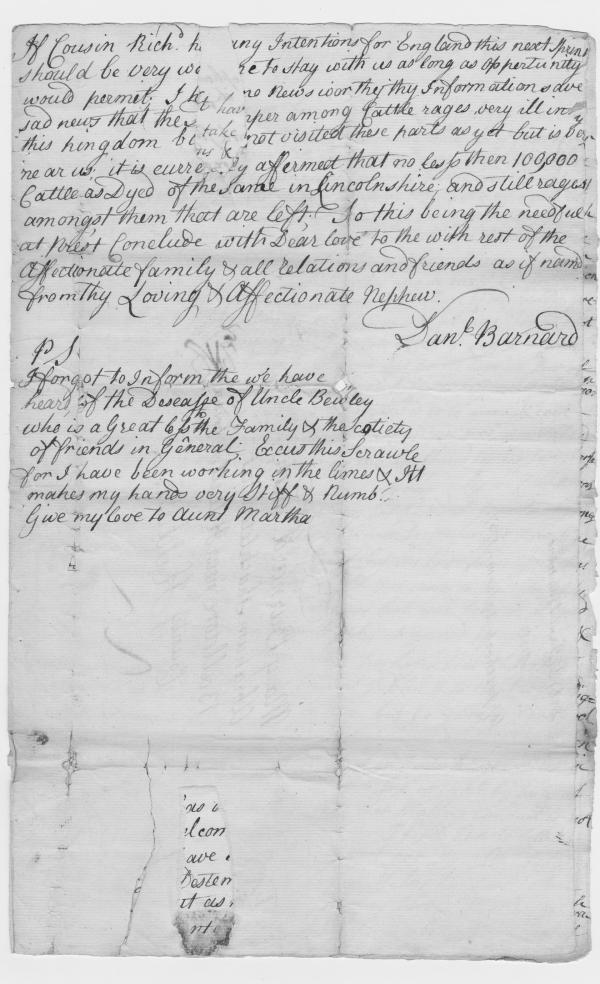 If Cousin Rich.d h any Intentions for England this next Spring
should be very wo re to stay with us as long as opportunity
would permet; I no News worthej thy Information save
sad news that the per among Cattle rages very ill in
this kingdom b not visited these parts as yet but is very
near us, it is curre ly affermed that no less then 100,000
Cattle as Dyed of the same in Lincolnshire, and still rages
amongst them that are left. So this being the needful
at Pres.t Conclude with Dear love to the with rest of the
Affectionate family & all relations and friends as if nam'd
from thy Loving & Affectionate Nephew.
Dan.l Barnard
P S
I forgot to Inform the we have
heard of the Deseasse of Uncle Bewley
who is a Great to the Family & the society
of friends in General; Excus this Scrawle
for I have been working in the limes & Itt
makes my hands very Stiff & Numb.
Give my love to Aunt Martha
hav
take
ns &
as
lcom
ave
Destem
t as